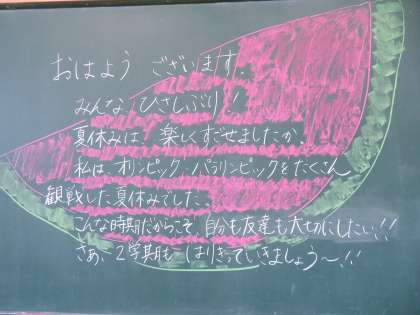 おはよう ございます。
みんな ひさしぶり!
夏休みは、楽しくすごせましたか。
私は、オリンピック、パラリンピックをたくさん
観戦した夏休みでした。
こんな時期だからこそ、自分も友達も大切にしたい!!
さあ、2学期も はりきっていきましょう〜!!